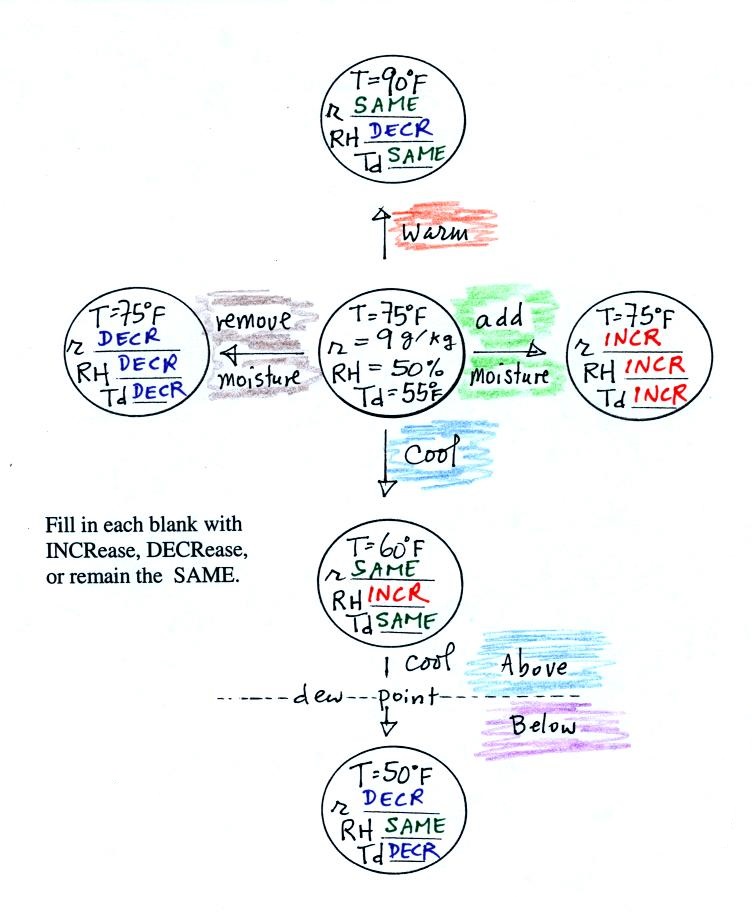 T=90°F
r SAME
RH DECR
Td SAME
Warm
T=75°F
r DECR
RH DECR
Td DECR
remove
moisture
T=75°F
r = 9 g/kg
RH = 50%
Td=55°F
add
moisture
T=75°F
r INCR
RH INCR
Td INCR
Cool
Fill in each blank with
INCRease, DECRease,
or remain the SAME.
T=60°F
r SAME
RH INCR
Td SAME
Cool
Above
dew point
Below
T=50°F
r DECR
RH SAME
Td DECR